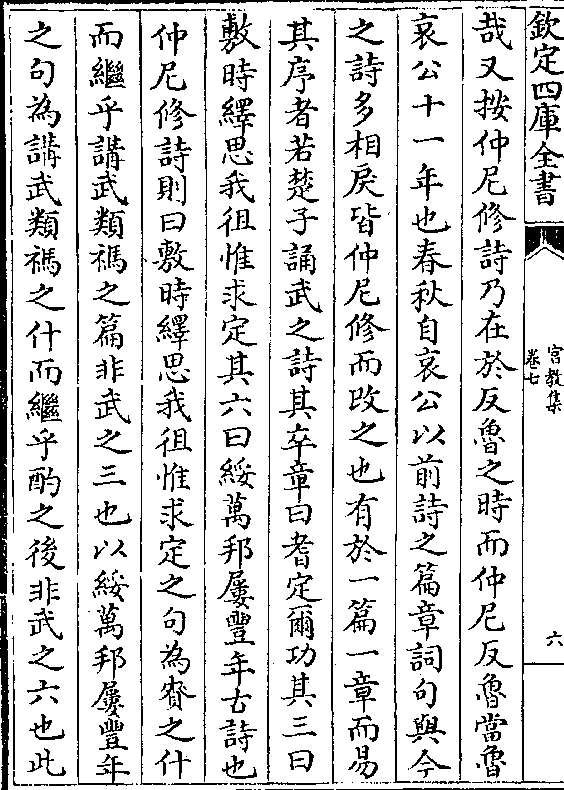 欽定四庫全書
宫教集
卷七
六
哉又按仲尼修詩乃在於反魯之時而仲尼反魯當魯
哀公十一年也春秋自哀公以前詩之篇章詞句與今
之詩多相戾皆仲尼修而改之也有於一篇一章而易
其序者若楚子誦武之詩其卒章曰耆定爾功其三曰
敷時繹思我徂惟求定其六曰綏萬邦屢豐年古詩也
仲尼修詩則曰敷時繹思我徂惟求定之句為賚之什
而繼乎講武類禡之篇非武之三也以綏萬邦屢豐年
之句為講武類禡之什而繼乎酌之後非武之六也此